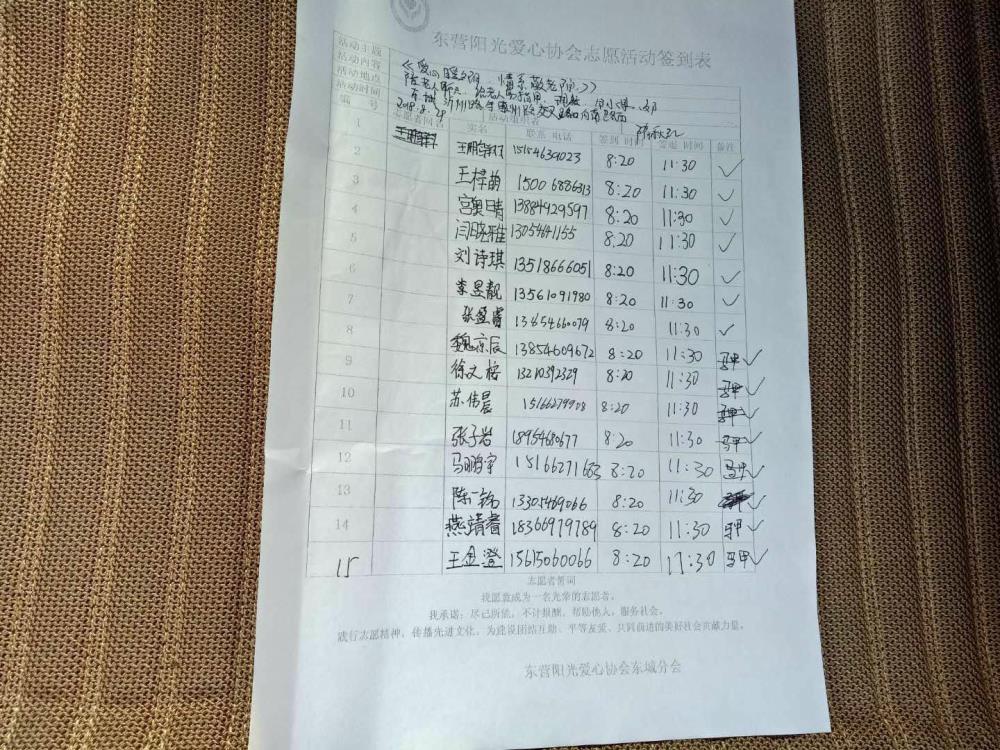 东营阳光爱心协会志愿活动签到表
活动主题 《爱心暖夕阳 情系敬老院》
活动内容 陪老人聊天 给老人剪指甲
活动地点
活动时间 2018.8.29 活动组织者
编 号 志愿者问名 实名 联系 电话 签到 时间 签退 时间 备注
1 15154639023 8:20 11:30 ✓
2 王梓萌 15006886313 8:20 11:30 ✓
3 宫奥晴 13884929597 8:20 11:30 ✓
4 闫晓雅 13054641155 8:20 11:30 ✓
5 刘诗琪 13518666051 8:20 11:30 ✓
6 李昱靓 13561091980 8:20 11:30 ✓
7 张益睿 13454660079 8:20 11:30 ✓
8 魏京辰 13854609672 8:20 11:30 马甲 ✓
9 徐文桉 13210392329 8:20 11:30 马甲 ✓
10 苏伟晨 15166279908 8:20 11:30 马甲 ✓
11 张子岩 18954680677 8:20 11:30 马甲 ✓
12 马鹏宇 15166271663 8:20 11:30 马甲 ✓
13 陈一铭 13305469066 8:20 11:30 ✓
14 燕靖睿 18366979789 8:20 11:30 马甲 ✓
15 王金澄 15615060066 8:20 11:30 马甲 ✓
志愿者誓词
我愿意成为一名光荣的志愿者。
我承诺：尽己所能，不计报酬，帮助他人，服务社会。
践行志愿精神，传播先进文化，为建设团结互助、平等友爱、共同前进的美好社会贡献力量。
东营阳光爱心协会东城分会